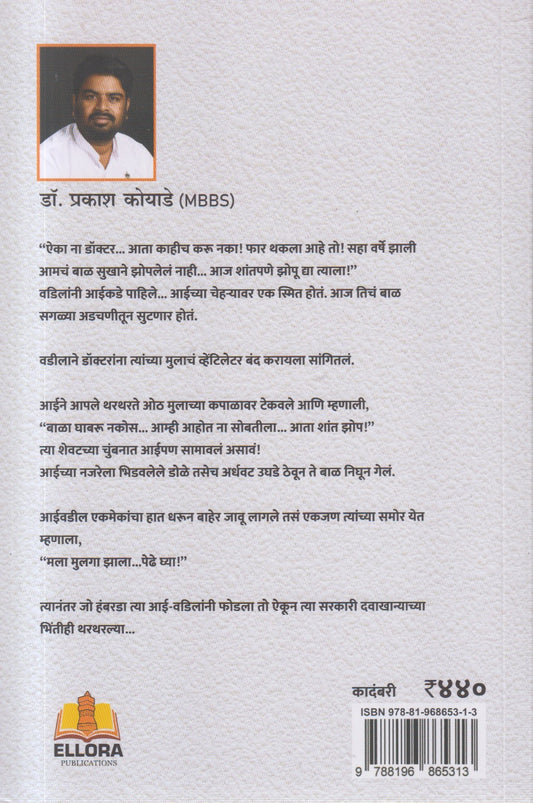 डॉ. प्रकाश कोयाडे (MBBS)
“ऐका ना डॉक्टर... आता काहीच करू नका! फार थकला आहे तो! सहा वर्षे झाली
आमचं बाळ सुखाने झोपलेलं नाही... आज शांतपणे झोपू द्या त्याला!”
वडिलांनी आईकडे पाहिले... आईच्या चेहऱ्यावर एक स्मित होतं. आज तिचं बाळ
सगळ्या अडचणीतून सुटणार होतं.
वडीलाने डॉक्टरांना त्यांच्या मुलाचं व्हेंटिलेटर बंद करायला सांगितलं.
आईने आपले थरथरते ओठ मुलाच्या कपाळावर टेकवले आणि म्हणाली,
“बाळा घाबरू नकोस... आम्ही आहोत ना सोबतीला... आता शांत झोप!”
त्या शेवटच्या चुंबनात आईपण सामावलं असावं!
आईच्या नजरेला भिडवलेले डोळे तसेच अर्धवट उघडे ठेवून ते बाळ निघून गेलं.
आईवडील एकमेकांचा हात धरून बाहेर जावू लागले तसं एकजण त्यांच्या समोर येत
म्हणाला,
“मला मुलगा झाला...पेढे घ्या!”
त्यानंतर जो हंबरडा त्या आई-वडिलांनी फोडला तो ऐकून त्या सरकारी दवाखान्याच्या
भिंतीही थरथरल्या...
कादंबरी ₹४४०
ISBN 978-81-968653-1-3
9 788196 865313
ELLORA
PUBLICATIONS